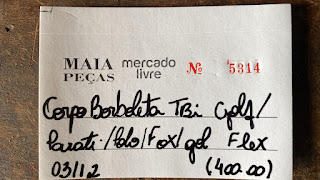 MAIA PEÇAS mercado livre Nº 5314
Corpo Borboleta TBi Golf/
Parati/Polo/Fox/gol Flex
03/12 (400.00)